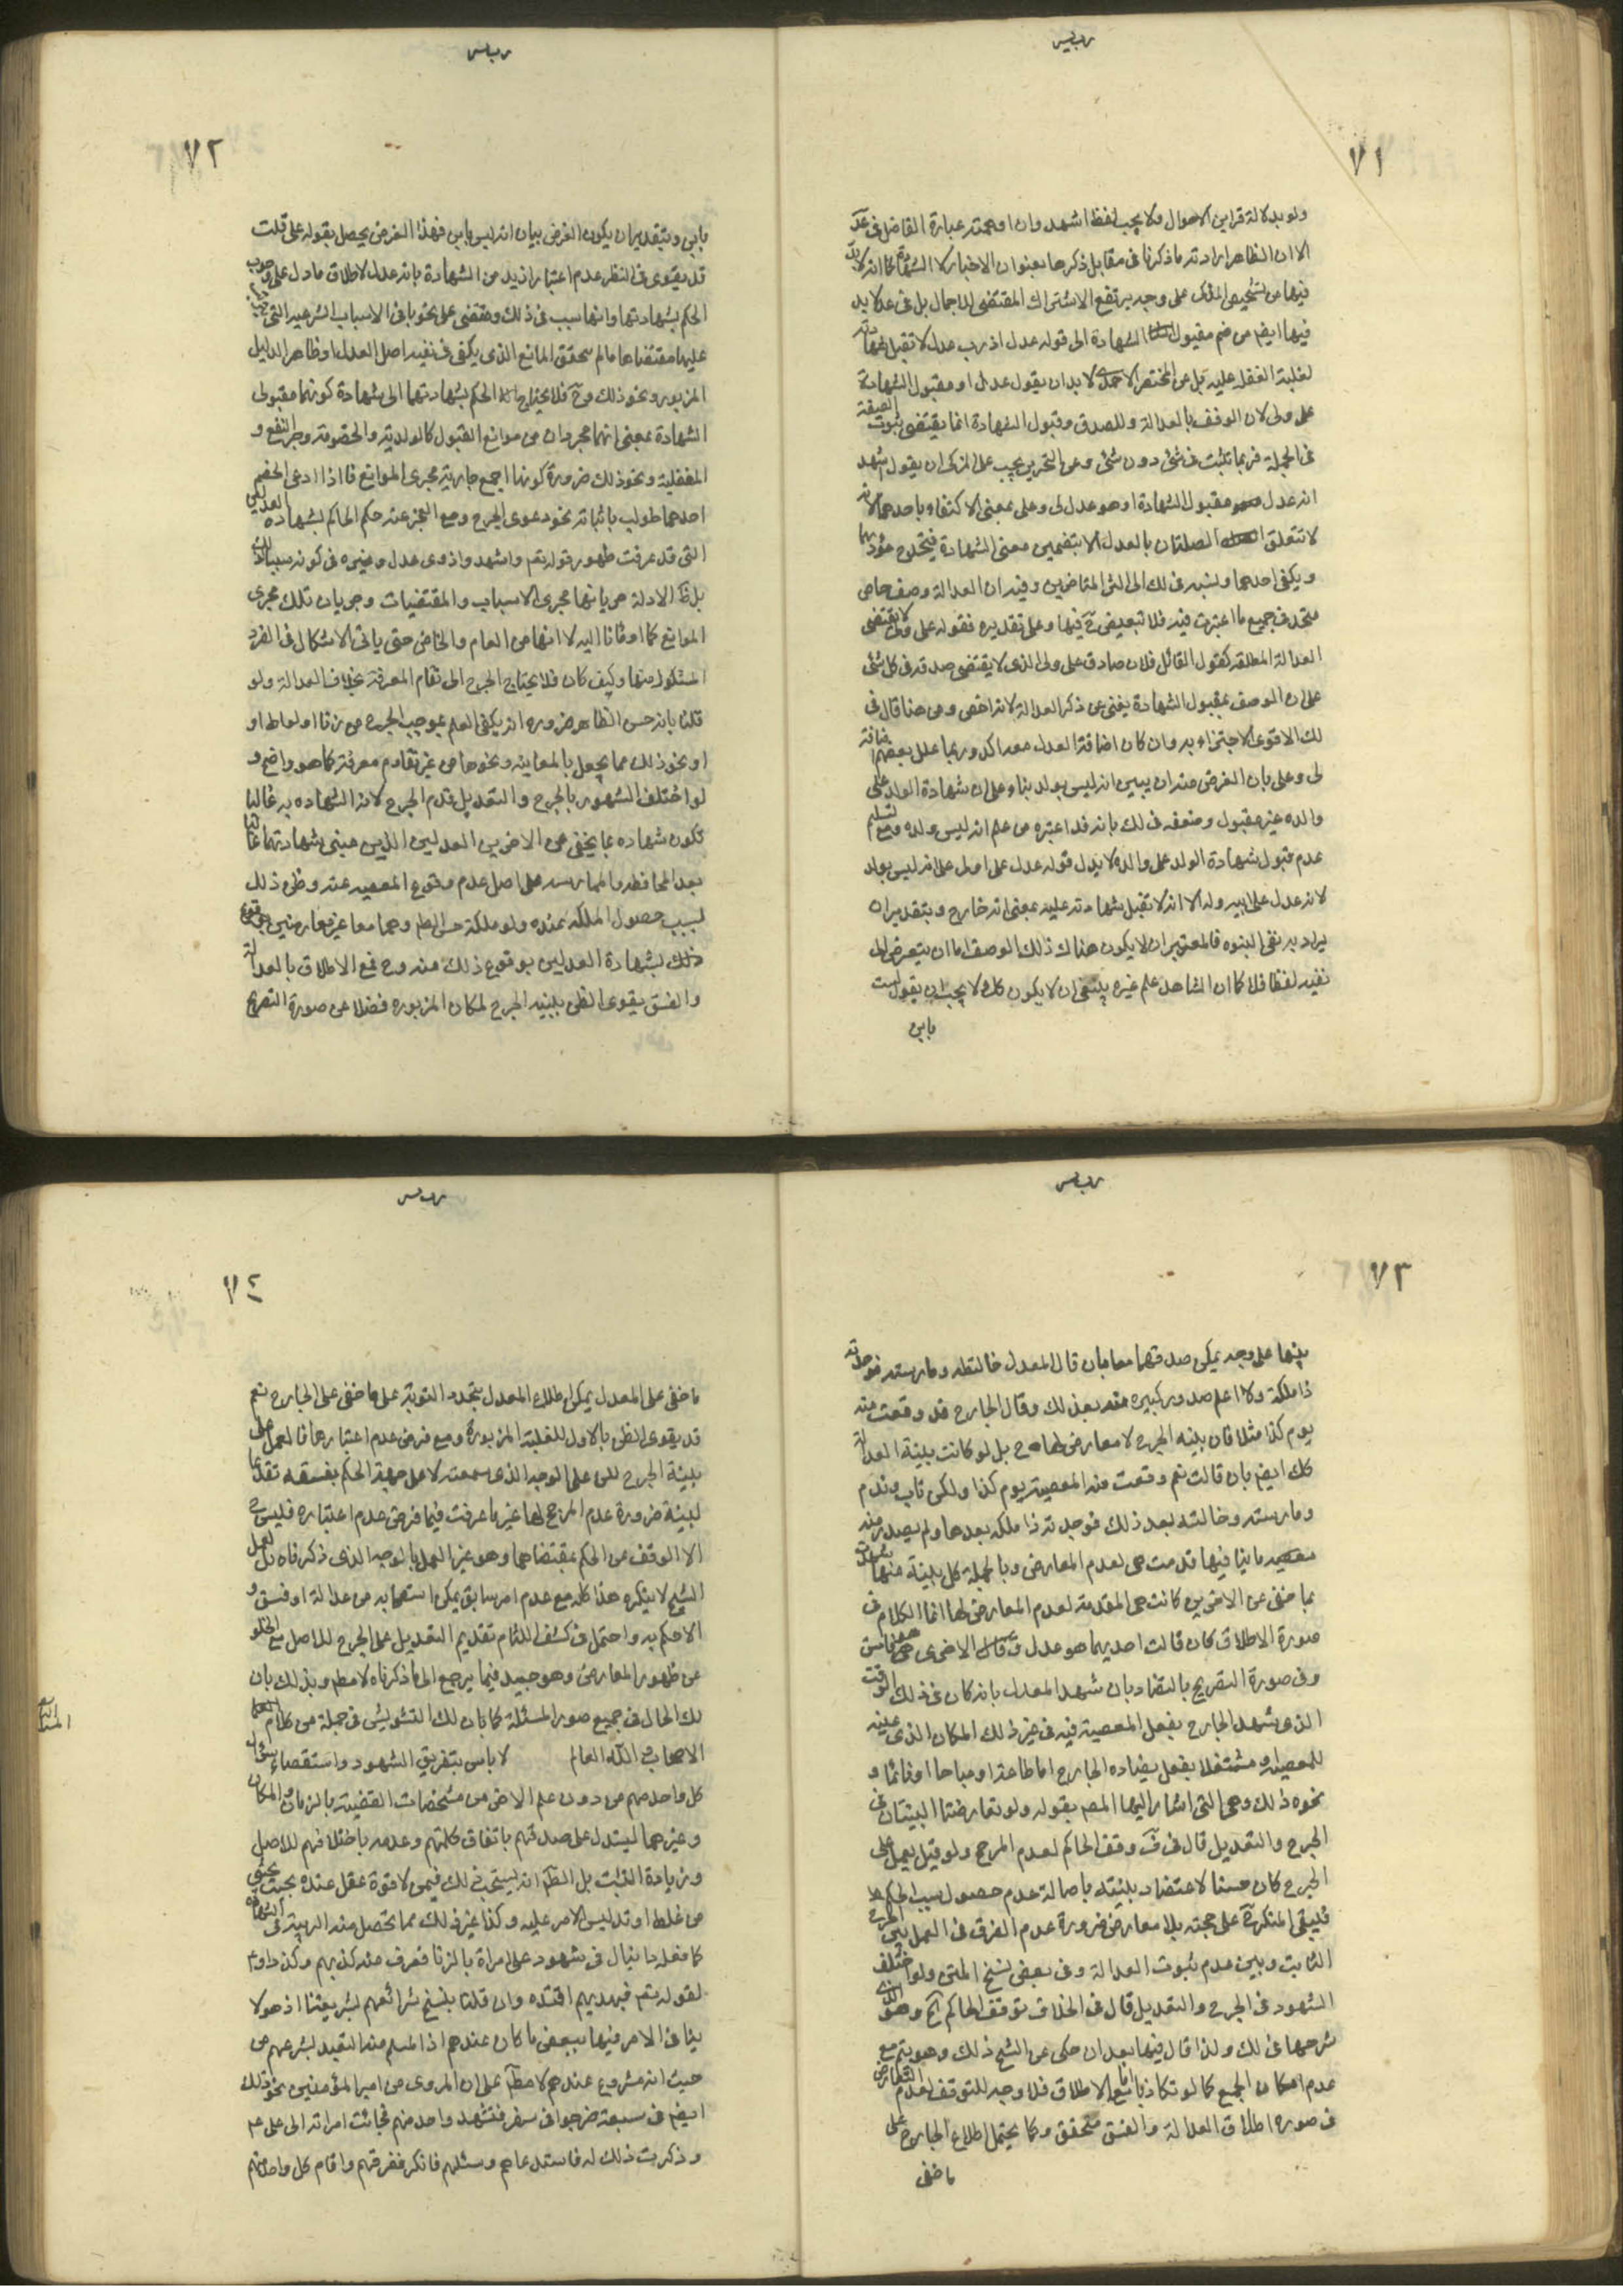 ٧١
ولو بدلالة قراين الاحوال ولا يجب لفظ اشهد وان اوهمته عبارة الفاضل في عد
الا ان الظاهر ارادته ما ذكرنا في مقابل ذكرها بعنوان الاخبار لا الشهادة كما انه لابد
فيها من تشخيص المزكى على وجه يرتفع الاشتراك المقتضى للاجمال بل في عد لا بد
فيها ايضم من ضم مقبول الشهادة الى قوله عدل اذ رب عدل لا تقبل شهادته
لغلبة الغفلة عليه بل عن المختصر الاحمدى لا بد ان يقول عدل او مقبول الشهادة
على ولى لان الوصف بالعدالة وللصدق وقبول الشهادة انما يقتضى ثبوت الصفة
في الجملة فربما تثبت في شئ دون شئ وعن التحرير يجب على المزكى ان يقول اشهد
انه عدل مقبول الشهادة او هو عدل لى وعلى بمعنى الاكتفاء باحدهما لانه
لا تتعلق الصلتان بالعدل الا بتضمين معنى الشهادة فيتحد مؤداهما
ويكفى احدهما ولنسبه في لك الى اكثر المتاخرين وفيه ان العدالة وصف خاص
متحد في جميع ما اعتبرت فيه فلا تبعيض فيها وعلى تقديره فقوله على ولى لا يقتضى
العدالة المطلقة كقول القائل فلان صادق على ولى الذى لا يقتضى صدقه في كل شئ
على ان الوصف بمقبول الشهادة يغنى عن ذكر العدالة لانه اخص ومن هنا قال في
لك الاقوى الاجتزاء به وان كان اضافة العدل معه اكد وربما علل بعضهم اضافة
لى وعلى بان الغرض منه ان يبين انه ليس بولد بناء على ان شهادة الولد على
والده غير مقبول وضعفه في لك بانه قد اعتبره من علم انه ليس ولده ومع تسليم
عدم قبول شهادة الولد على والده لا يدل قوله عدل على او لى على انه ليس بولد
لانه عدل على ابيه وله الا انه لا تقبل شهادته عليه بمعنى انه خارج وبتقدير ان
يراد به نفى البنوه فالمعتبر ان لا يكون هناك ذلك الوصف اما ان يتعرض الى
نفيه لفظا فلا كما ان الشاهد على غيره ينبغى ان لا يكون كك ولا يجب ان يقول لست
بابن
٧٢
بابن وبتقدير ان يكون الغرض بيان انه ليس بابن فهذا الغرض يحصل بقوله على قلت
قد يقوى في النظر عدم اعتبار ازيد من الشهادة بانه عدل لاطلاق ما دل على وجوب
الحكم بشهادتهما وانها سبب في ذلك ومقتضى على نحو باقى الاسباب الشرعيه التى
عليها مقتضاها ما لم يتحقق المانع الذى يكفى في نفيه اصل العدل او ظاهر الدليل
المزبور ونحو ذلك وح فلا يحتاج الحكم بشهادتهما الى شهادة كونهما مقبولى
الشهادة بمعنى انهما مجردان من موانع القبول كالولديه والخصومة وجر النفع و
المغفلية ونحو ذلك ضرورة كونها اجمع جارية مجرى الموانع فاذا ادعى الخصم
احدهما طولب باثباته نحو دعوى الجرح ومع العجز عنه حكم الحاكم بشهاده العدلين
التى قد عرفت ظهور قوله تعم واشهدوا ذوى عدل وغيره في كونه سببا لذلك
بل ظ الادلة جريانها مجرى الاسباب والمقتضيات وجريان تلك مجرى
الموانع كما اومانا اليه لا انها من العام والخاص حتى ياتى الاشكال في الفرد
المشكوك منها وكيف كان فلا يحتاج الجرح الى تقادم المعرفة بخلاف العدالة ولو
قلنا بانه حسن الظاهر ضروره انه يكفى العلم بموجب الجرح من زنا او لواط او
او نحو ذلك مما يحصل بالمعاينه ونحوها من غير تقادم معرفة كما هو واضح و
لو اختلف الشهود بالجرح والتعديل قدم الجرح لانه الشهاده به غالبا
تكون شهاده بما يخفى عن الاخرين العدلين الذين مبنى شهادتهما غالبا
بعد المحافظه والممارسه على اصل عدم وقوع المعصيه عنه وظن ذلك
بسبب حصول الملكه عنده ولو ملكة حسن الظاهر وهما معا غير معارضين لوقوع
ذلك بشهادة العدلين بوقوع ذلك منه وح فمع الاطلاق بالعدالة
والفسق يقوى الظن ببينه الجرح لمكان المزبوره فضلا عن صورة التصريح
٧٣
بينهما على وجه يمكن صدقهما معا بان قال المعدل خالطته ومارسته فوجدته
ذا ملكة ولا اعلم صدور كبيره منه بعد ذلك وقال الجارح قد وقعت منه
يوم كذا مثلا فان بينه الجرح لا معارض لها ح بل لو كانت بينة العدالة
كك ايضم بان قالت نعم وقعت منه المعصية يوم كذا ولكن تاب وندم
ومارسته وخالطته بعد ذلك فوجدته ذا ملكه بعدها ولم يصدر منه
معصيه ما ينافيها قدمت هى لعدم المعارض وبالجملة كل بينة منهما شهدت
بما خفى عن الاخرين كانت هى المقدمه لعدم المعارض لها انما الكلام في
صورة الاطلاق كان قالت احديهما هو عدل وقالت الاخرى هو فاسق
وفى صورة التصريح بالتضاد بان شهد المعدل بانه كان في ذلك الوقت
الذى شهد الجارح بفعل المعصية فيه في غير ذلك المكان الذى عينه
للمعصية او مشتغلا بفعل يضاده الجارح اما طاعة او مباحا او نائما و
نحوه ذلك وهى التى اشار اليها المصم بقوله ولو تعارضتا البينتان في
الجرح والتعديل قال في ف وقف الحاكم لعدم المرجح ولو قيل يعمل على
الجرح كان حسنا لاعتضاد بينته باصالة عدم حصول سبب الحكم
فيبقى المنكر على حجته بلا معارض ضرورة عدم الفرق في العمل بين الجرح
الثابت وبين عدم ثبوت العدالة وفى بعض نسخ المتن ولو اختلف
الشهود في الجرح والتعديل قال في الخلاف توقف الحاكم الخ وهو الذى
شرحها في لك ولذا قال فيها بعد ان حكى عن الشيخ ذلك وهو يتم مع
عدم امكان الجمع كما لو تكاذبا اما مع الاطلاق فلا وجه للتوقف لعدم التعارض
في صوره اطلاق العدالة والفسق متحقق وكما يحتمل اطلاع الجارح على
ما خفى
٧٤
ما خفى على المعدل يمكن اطلاع المعدل بتجدد التوبة على ما خفى على الجارح نعم
قد يقوى الظن بالاول للغلبة المزبورة ومع فرض عدم اعتبارها فالعمل على
بينة الجرح للن على الوجه الذى سمعته لا على جهة الحكم بفسقه تقديما
لبينة ضرورة عدم المرجح لها غير ما عرفت فيما فرض عدم اعتباره فليس ح
الا الوقف عن الحكم بمقتضاهما وهو عين العمل بالوجه الذى ذكرناه بل لعل
الشيخ لا ينكره هذا كله مع عدم امر سابق يمكن استصحابه من عدالة او فسق و
الا حكم به واحتمل في كشف اللثام تقديم التعديل على الجرح للاصل مع الخلو
عن ظهور المعارض وهو جيد فيما يرجع الى ما ذكرناه لا مطم وبذلك بان
لك الحال في جميع صور المسئلة كما بان لك التشويش في جملة من كلام
الاصحاب والله العالم لا باس بتفريق الشهود واستقصاء سؤال
كل واحد منهم من دون علم الاخر من مشخصات القضية بالزمان والمكان
وغيرهما ليستدل على صدقهم باتفاق كلمتهم وعدمه باختلافهم للاصل
وزيادة التثبت بل الظ انه يستحب ذلك فيمن لا قوة عقل عنده بحيث يخشى
من غلط او تدليس الامر عليه وكذا غير ذلك مما تحصل منه الريبة في الشهادة
كما فعله دانيال في شهود على امراة بالزنا فعرف منه كذبهم وكذا داود
لقوله تعم فبهديهم اقتده وان قلنا بنسخ شرائعهم بشريعتنا اذ هو لا
ينافى الامر فيها ببعض ما كان عندهم اذ المسلم منه التقييد بشرعهم من
حيث انه مشروع عندهم لا مطم على ان المروى من امير المؤمنين نحو ذلك
ايضم في سبعة خرجوا في سفر ففقد واحد منهم فجائت امراته الى على عم
وذكرت ذلك له فاستدعاهم وسئلهم فانكر ففرقهم واقام كل واحد منهم